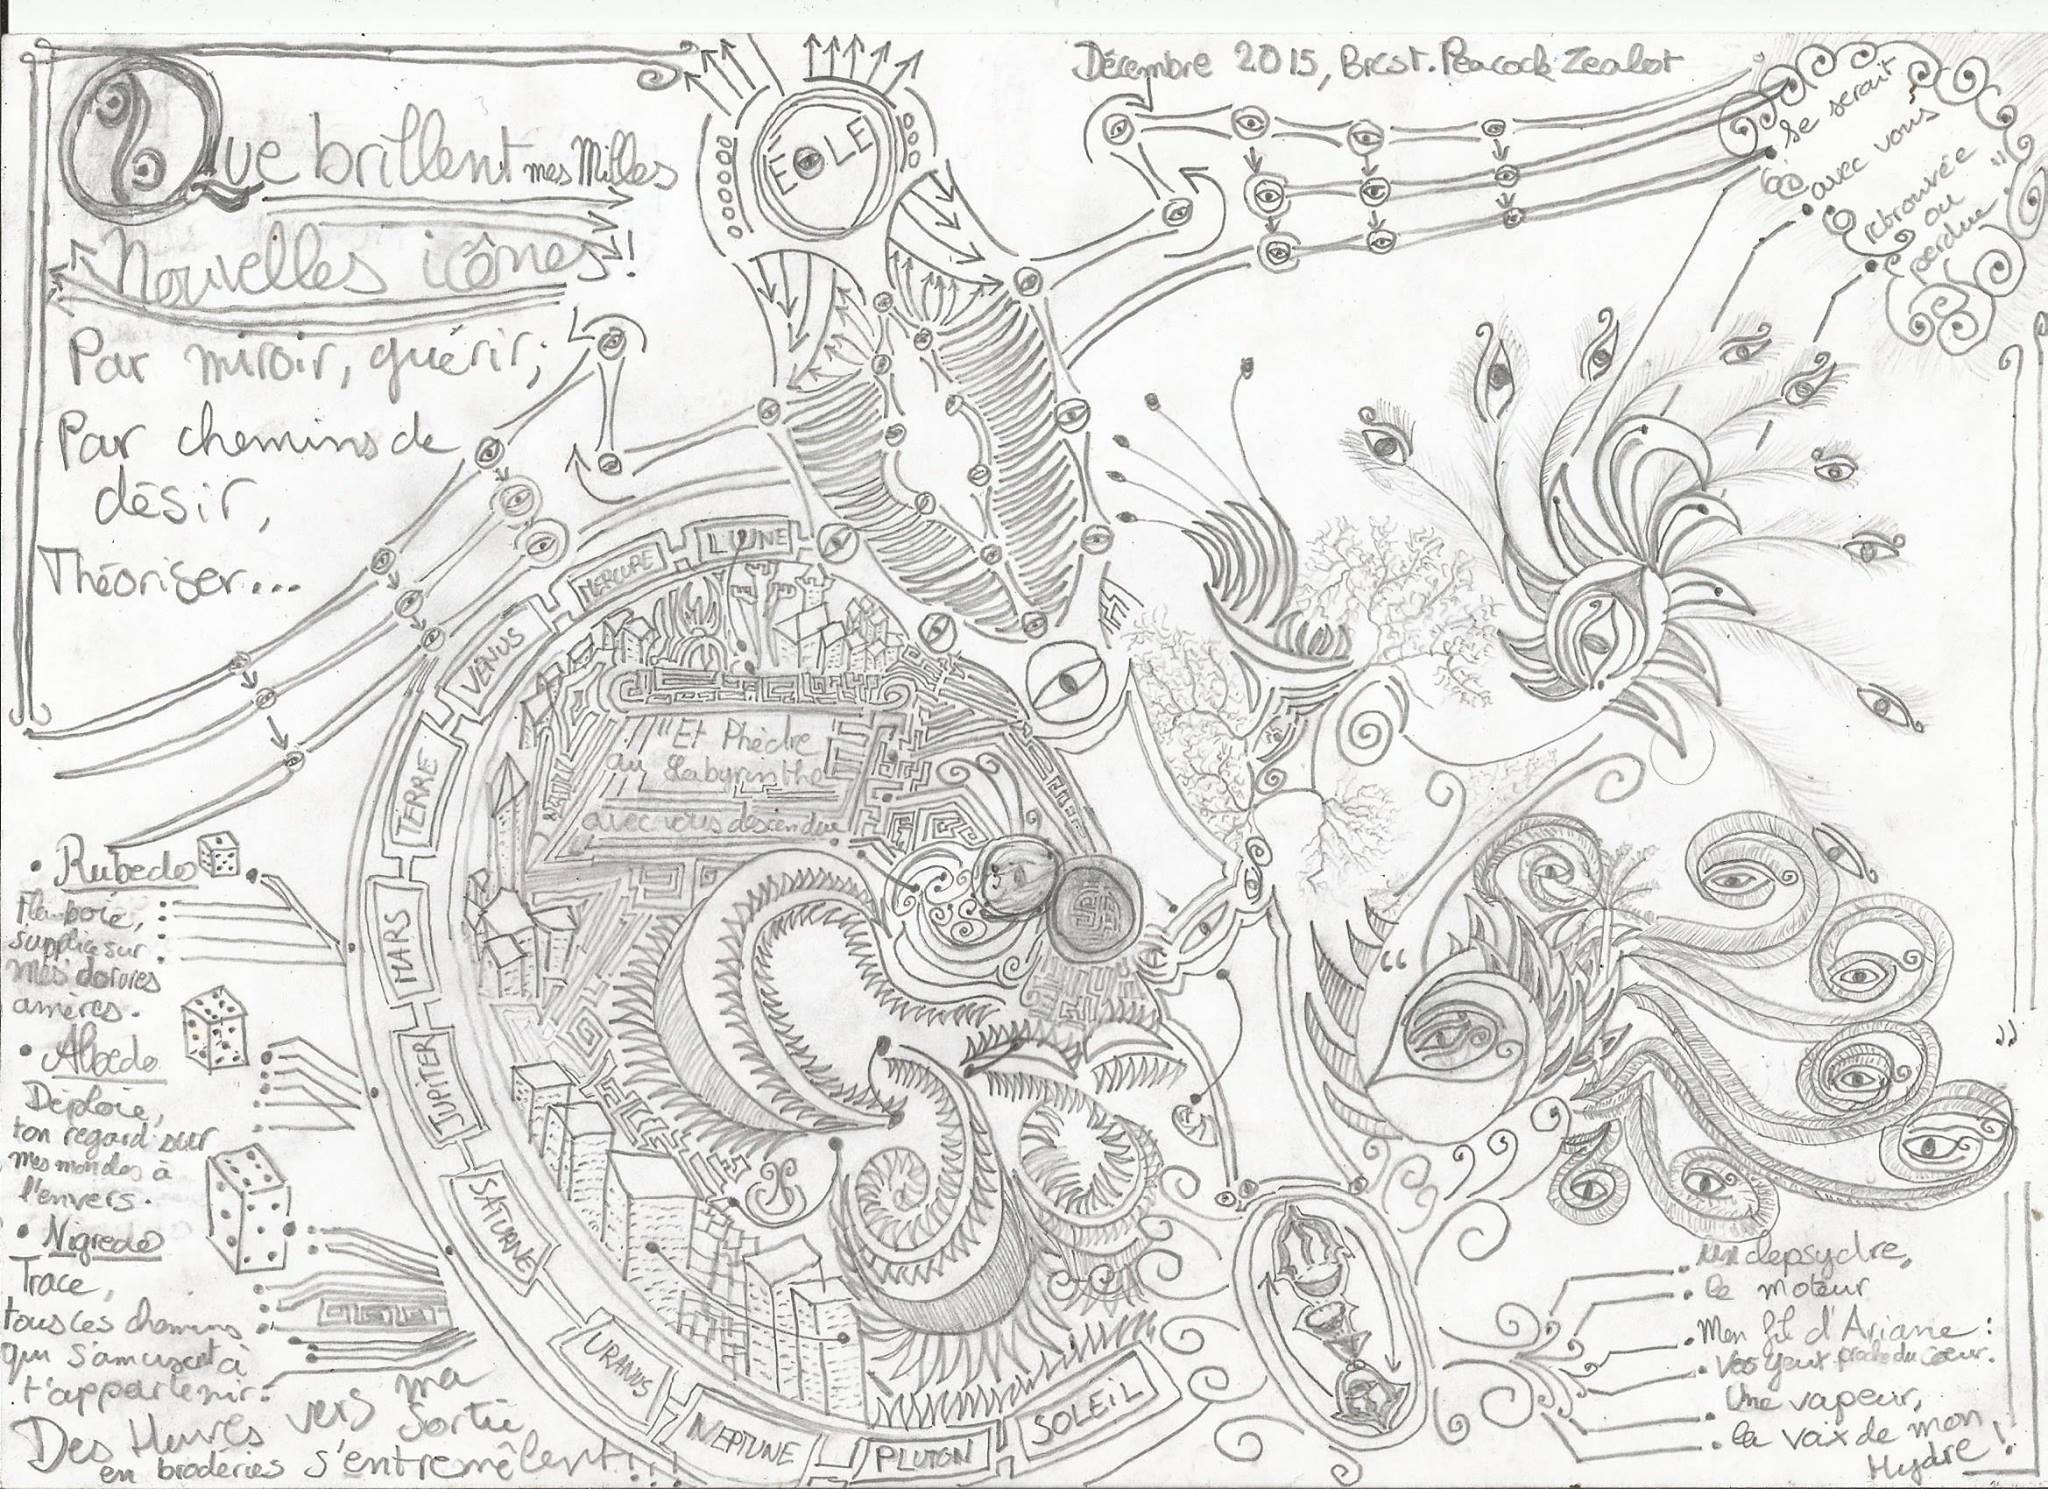 Que brillent mes Milles
Nouvelles icônes!
Par miroir, guérir;
Par chemins de
désir,
Théoriser...
EOLE
Décembre 2015, Brest. Peacock Zealot
se serait
avec vous
retrouvée
ou
perdue"
LUNE
MERCURE
VENUS
TERRE
MARS
JUPITER
SATURNE
URANUS
NEPTUNE
PLUTON
SOLEIL
"Et Phèdre
au Labyrinthe
avec vous descendue
• Rubedo
Flamboie,
supplie sur
mes dorures
amères.
• Albedo
Déploie,
ton regard sur
mes mondes à
l'envers.
• Nigredo
Trace,
tous ces chemins
qui s'amusent à
t'appartenir.
Des Heures vers ma
Sortie
en broderies s'entremêlent!!!
"
"
Un clepsydre,
le moteur
Mon fil d'Ariane:
Vos yeux proche du cœur.
Une vapeur,
la voix de mon
Hydre!